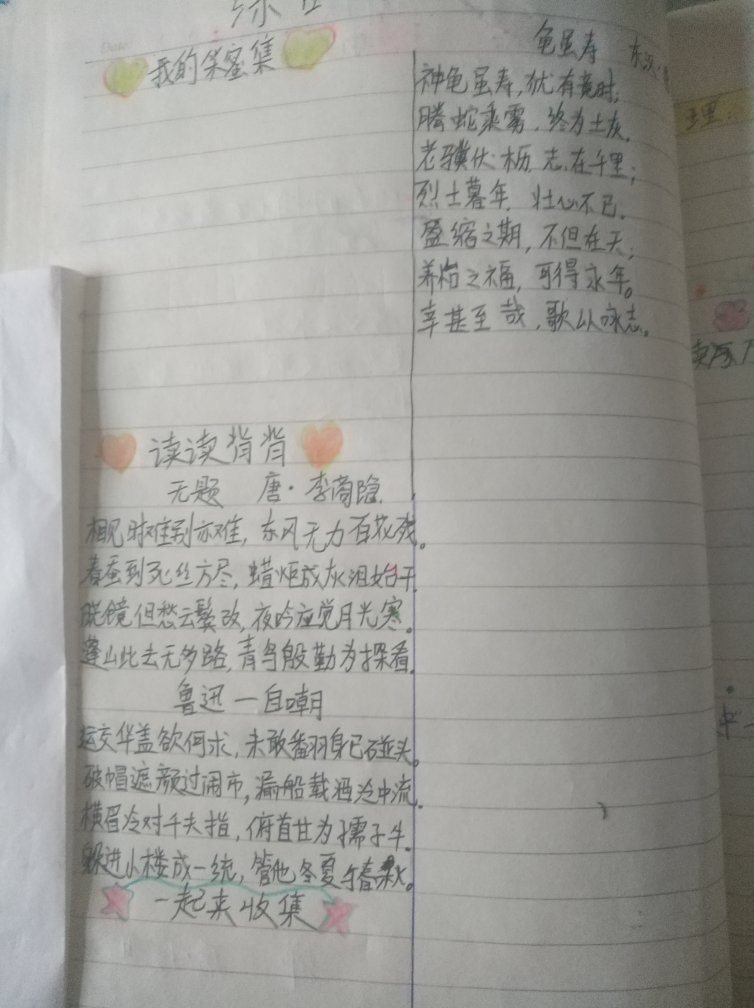 我的亲蜜集
读读背背
无题 唐·李商隐
相见时难别亦难，东风无力百花残。
春蚕到死丝方尽，蜡炬成灰泪始干。
晓镜但愁云鬓改，夜吟应觉月光寒。
蓬山此去无多路，青鸟殷勤为探看。
鲁迅一自嘲
运交华盖欲何求，未敢翻身已碰头。
破帽遮颜过闹市，漏船载酒泛中流。
横眉冷对千夫指，俯首甘为孺子牛。
躲进小楼成一统，管他冬夏与春秋。
一起来收集
龟虽寿 东汉·
神龟虽寿，犹有竟时；
腾蛇乘雾，终为土灰。
老骥伏枥，志在千里；
烈士暮年，壮心不已。
盈缩之期，不但在天；
养怡之福，可得永年。
幸甚至哉，歌以咏志。